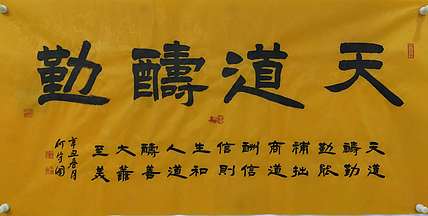 天道醻勤
天道
醻勤
勤能
補拙
商道
酬信
信則
生和
人道
醻善
大善
至美
辛丑春月